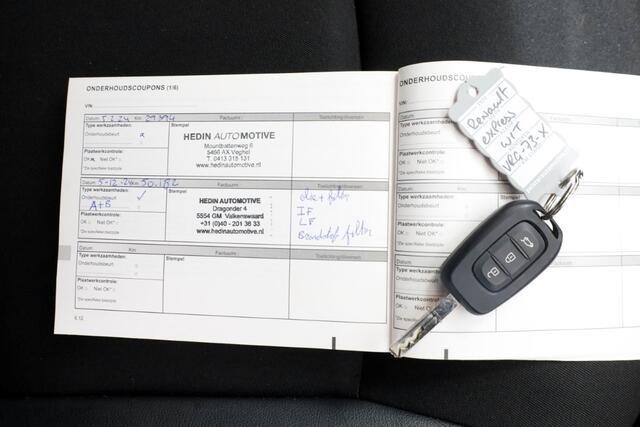 ONDERHOUDSCOUPONS (1/6)
VIN:
Datum: 5.2.24 Km:
Factuurnr.:
Toelichting/diversen:
Type werkzaamheden:
Onderhoudsbeurt x
Stempel
HEDIN AUTOMOTIVE
Mounthattenweg 6
5466 AX Veghel
T. 0413 315 131
www.hedinautomotive.nl
Plaatwerkcontrole:
OK Niet OK*
*Zie specifieke bladzijde
Datum: 5-12-24 Km: 50.182
Factuurnr.:
Toelichting/diversen:
Type werkzaamheden:
Onderhoudsbeurt ✓
A+B
Stempel
HEDIN AUTOMOTIVE
Dragonder 4
5554 GM Valkenswaard
+31 (0)40 - 201 36 33
www.hedinautomotive.nl
olie + filter
IF
LF
Brandstof filter
Plaatwerkcontrole:
OK Niet OK*
*Zie specifieke bladzijde
Datum: Km:
Factuurnr.:
Toelichting/diversen:
Type werkzaamheden:
Onderhoudsbeurt
Stempel
Plaatwerkcontrole:
OK Niet OK*
*Zie specifieke bladzijde
6.12
ONDERHOUDSCOU
VIN:
Datum:
Type werkzaamheden:
Onderhoudsbeurt
Plaatwerkcontrole:
OK Niet OK*
*Zie specifieke bladzijde
Datum:
Type werkzaamheden:
Onderhoudsbeurt
Plaatwerkcontrole:
OK Niet OK*
*Zie specifieke bladzijde
Datum:
Type werkzaamheden:
Onderhoudsbeurt
Plaatwerkcontrole:
Renault
express
WIT